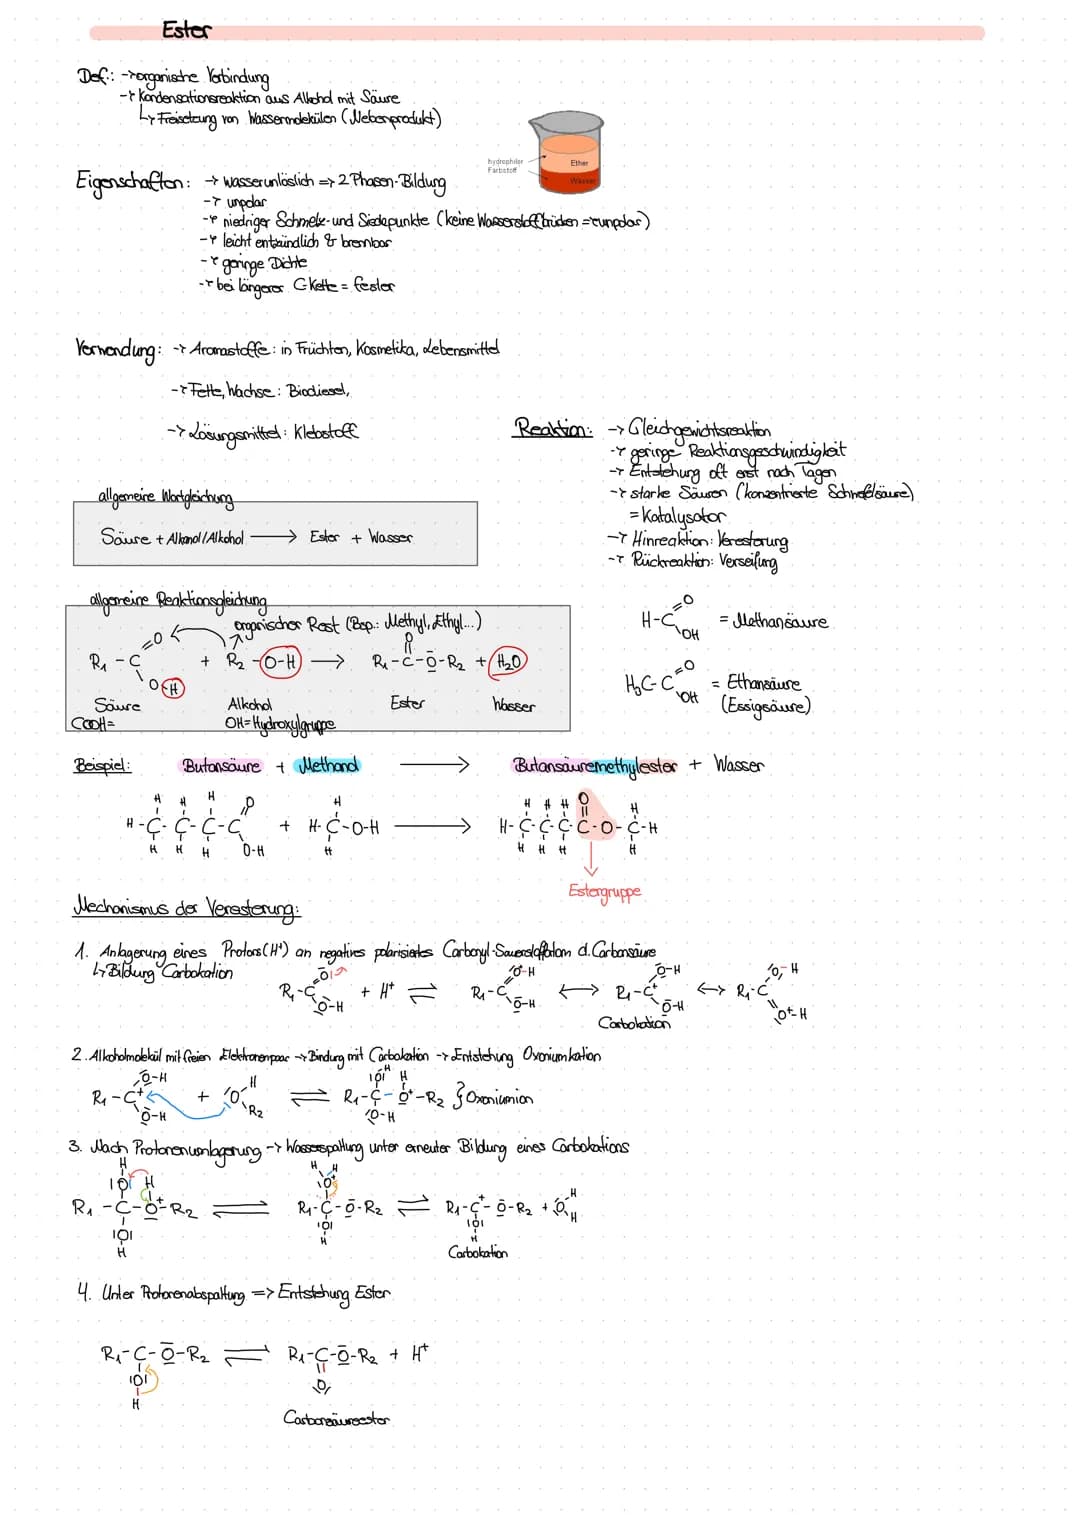 Ester
Def.: → organische Verbindung
→ Kondensationsreaktion aus Alkohol mit Säure
↳ Freisetzung von Wassermolekülen (Nebenprodukt)
hydrophiler
Farbstoff
Ether
Wasser
Eigenschaften: → wasserunlöslich => 2 Phasen-Bildung
→ unpolar
→ niedriger Schmelz- und Siedepunkte (keine Wasserstoffbrücken = unpolar)
→ leicht entzündlich & brennbar
→ geringe Dichte
→ bei längerer C-Kette = fester
Verwendung: → Aromastoffe: in Früchten, Kosmetika, Lebensmittel
→ Fette, Wachse: Biodiesel,
→ Lösungsmittel: Klebstoff
Reaktion: → Gleichgewichtsreaktion
→ geringe Reaktionsgeschwindigkeit
→ Entstehung oft erst nach Tagen
→ starke Säuren (konzentrierte Schwefelsäure)
= Katalysator
→ Hinreaktion: Veresterung
→ Rückreaktion: Verseifung
allgemeine Wortgleichung
Säure + Alkanol/Alkohol → Ester + Wasser
allgemeine Reaktionsgleichung
organischer Rest (Bsp.: Methyl, Ethyl...)
=O O
R₁-C + R₂-O-H → R₁-C-O-R₂ + H₂O
O-H
Säure Alkohol Ester Wasser
COOH= OH=Hydroxylgruppe
=O
H-C = Methansäure
OH
=O
H₃C-C = Ethansäure
OH (Essigsäure)
Beispiel: Butansäure + Methanol → Butansäuremethylester + Wasser
H H H O H H H H O H
H-C-C-C-C + H-C-O-H → H-C-C-C-C-O-C-H
H H H O-H H H H H H
Estergruppe
Mechanismus der Veresterung:
1. Anlagerung eines Protons (H⁺) an negatives polarisiertes Carbonyl-Sauerstoffatom d. Carbonsäure
↳ Bildung Carbokation
=O| O-H O-H O-H
R₁-C + H⁺ ⇌ R₁-C ↔ R₁-C⁺ ↔ R₁-C
O-H O-H O-H O⁺-H
Carbokation
2. Alkoholmolekül mit freien Elektronenpaar → Bindung mit Carbokation → Entstehung Oxoniumkation
O-H H |O|H H
R₁-C⁺ + |O ⇌ R₁-C-O⁺-R₂ } Oxoniumion
O-H R₂ O-H
3. Nach Protonenumlagerung → Wasserspaltung unter erneuter Bildung eines Carbokations
H H H
|O| H |O⁺ H
R₁-C-O⁺-R₂ ⇌ R₁-C-O-R₂ ⇌ R₁-C⁺-O-R₂ + |O
|O| |O| |O| H
H H H
Carbokation
4. Unter Protonenabspaltung => Entstehung Ester
R₁-C-O-R₂ ⇌ R₁-C-O-R₂ + H⁺
|O| O
H
Carbonsäureester